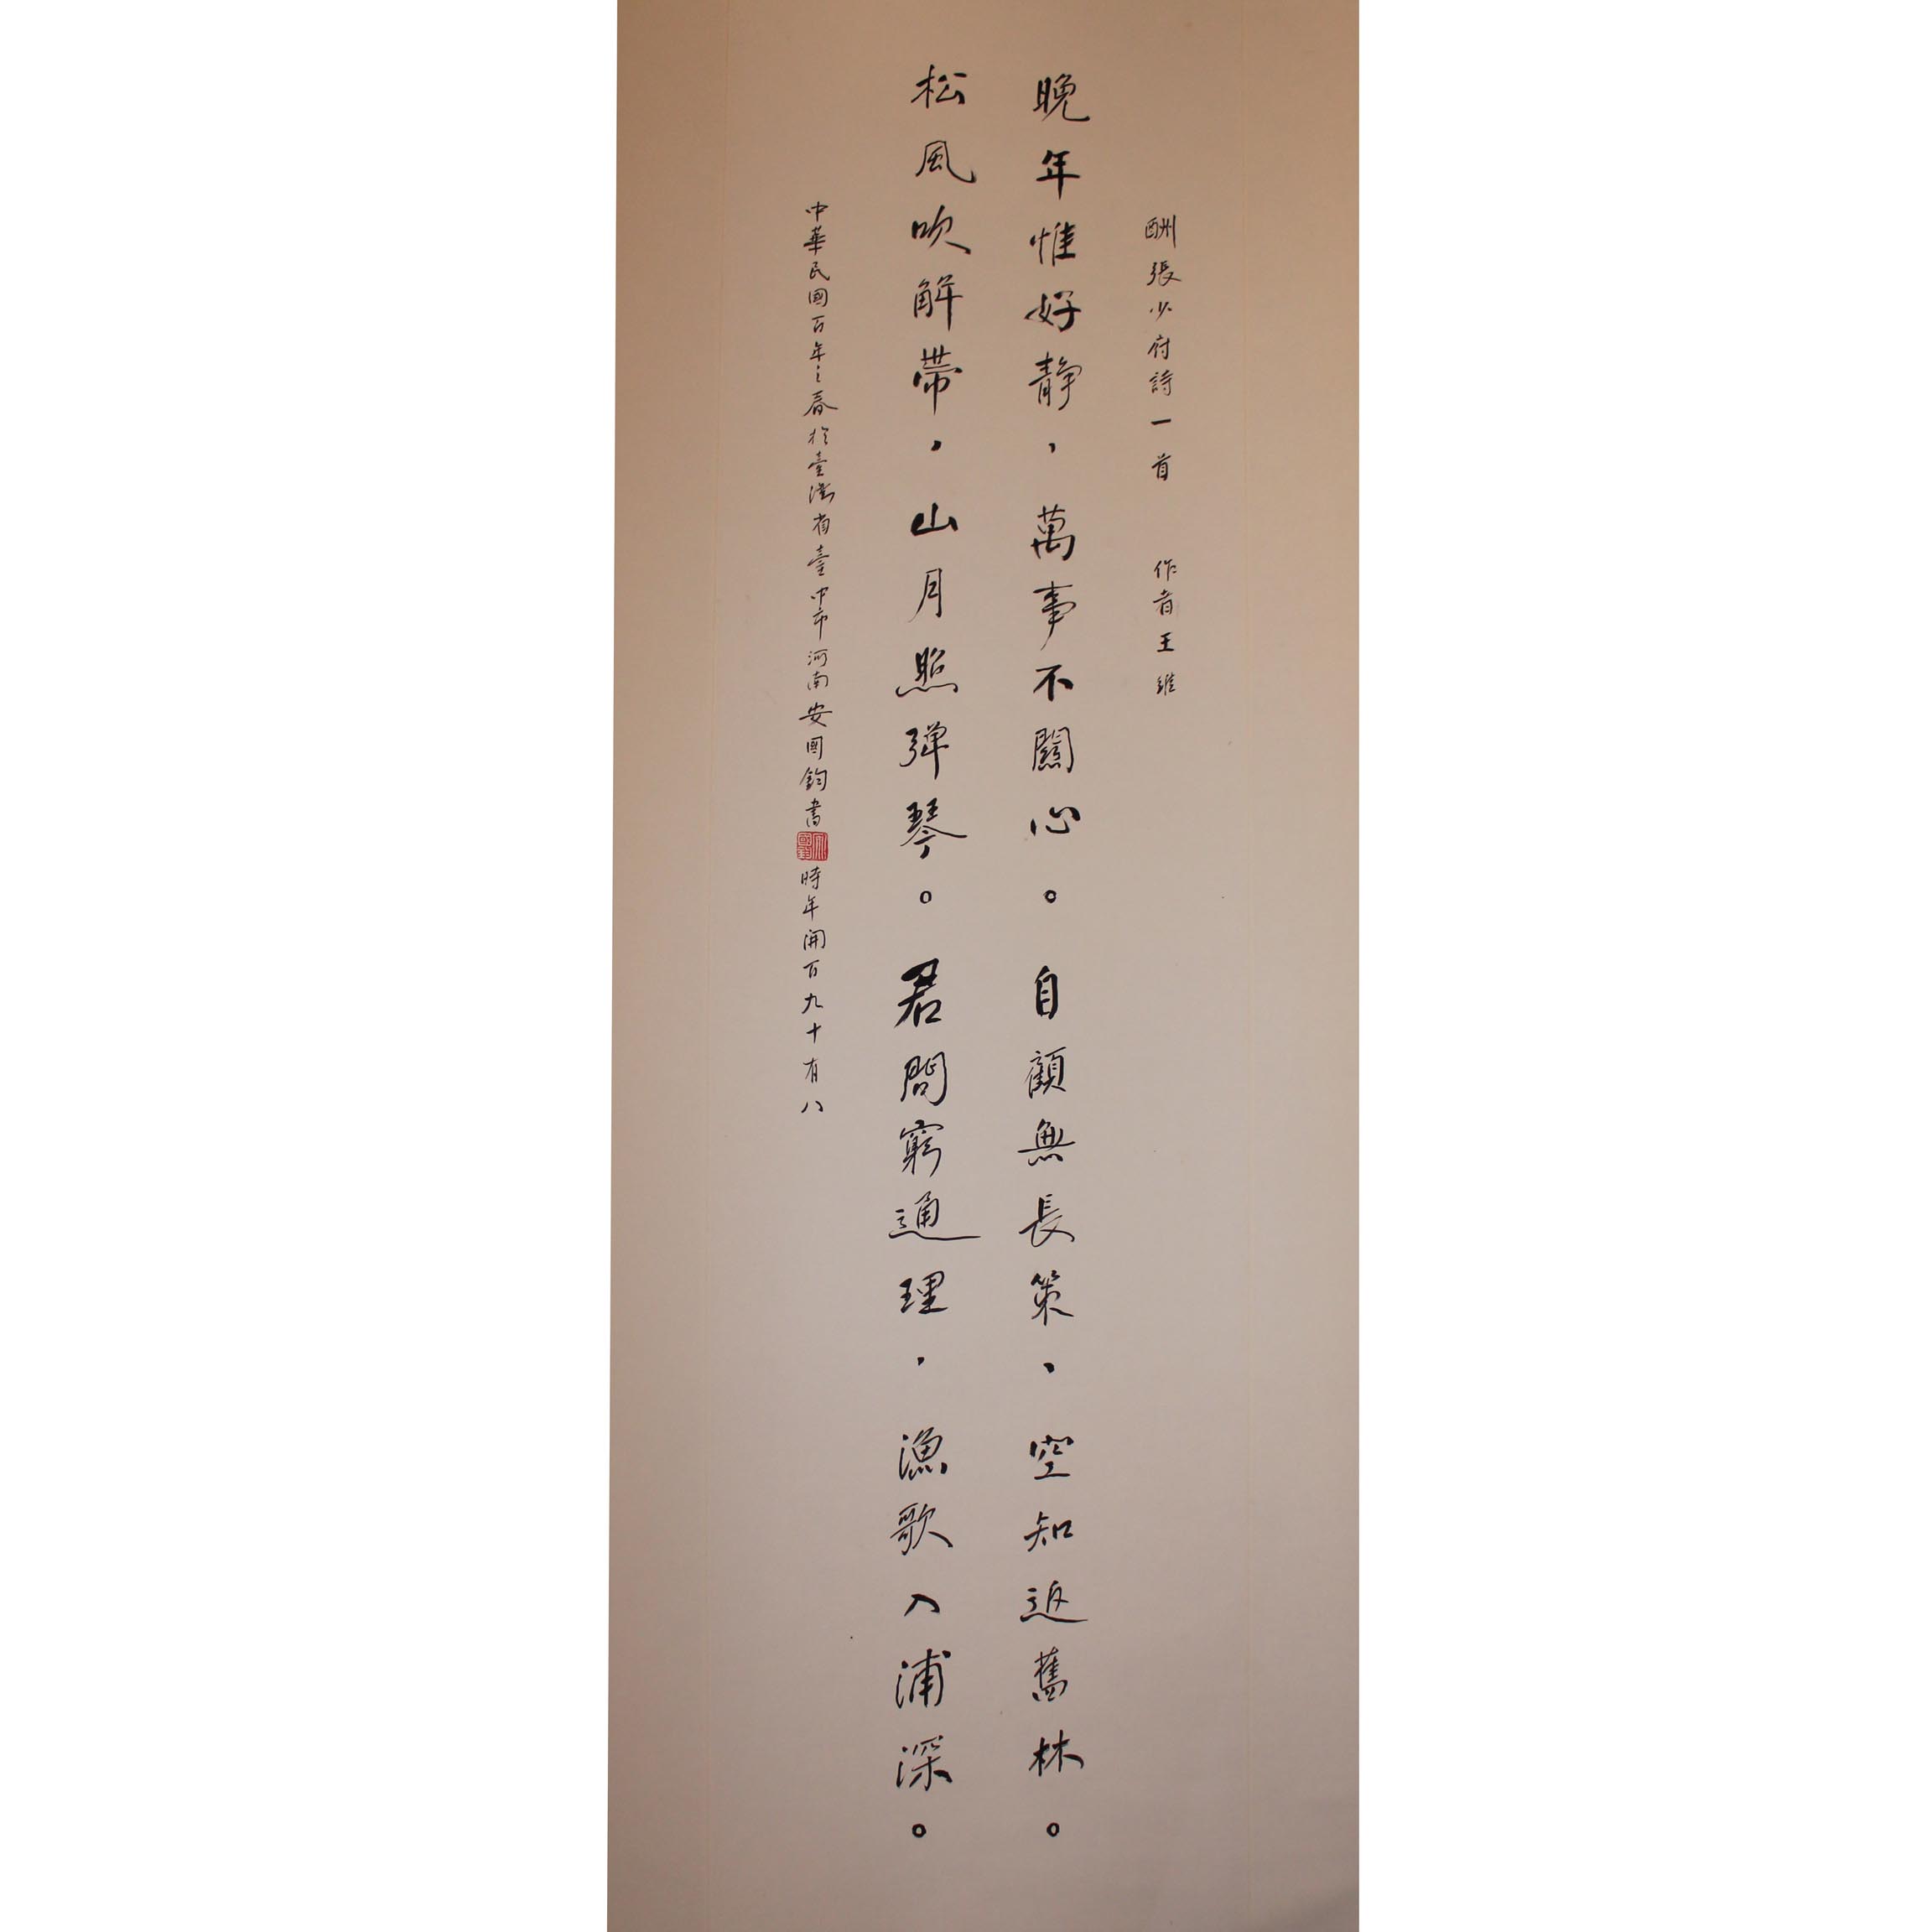 酬張少府詩一首 作者王維
晚年惟好靜，萬事不關心。自顧無長策，空知返舊林。
松風吹解帶，山月照彈琴。君問窮通理，漁歌入浦深。
中華民國百年之春於臺灣省臺中市河南安國鈞書 時年開百九十有八